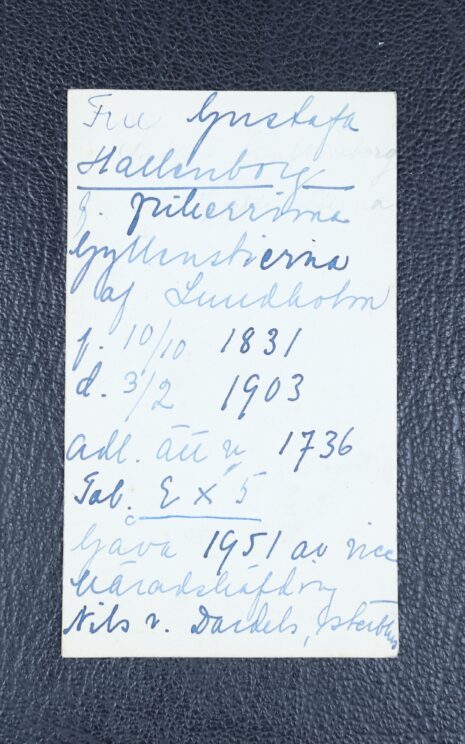 Fru Gustafa
Hallenborg
f. friherrinna
Gyllenstierna
af Lundholm
f. 10/10 1831
d. 3/2 1903
Adl. ätt n 1736
Tab. E X 5
Gåva 1951 av vice
Häradshöfding
Nils v. Dardels,